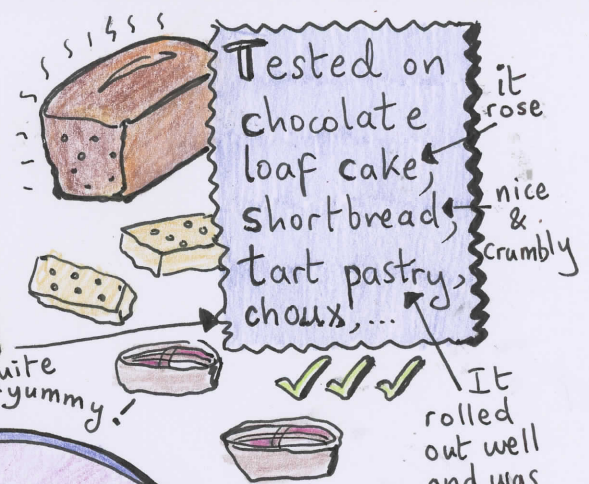 Tested on
chocolate
loaf cake,
shortbread,
tart pastry,
choux,...
it
rose
nice
&
crumbly
uite
yummy!
It
rolled
out well
and was